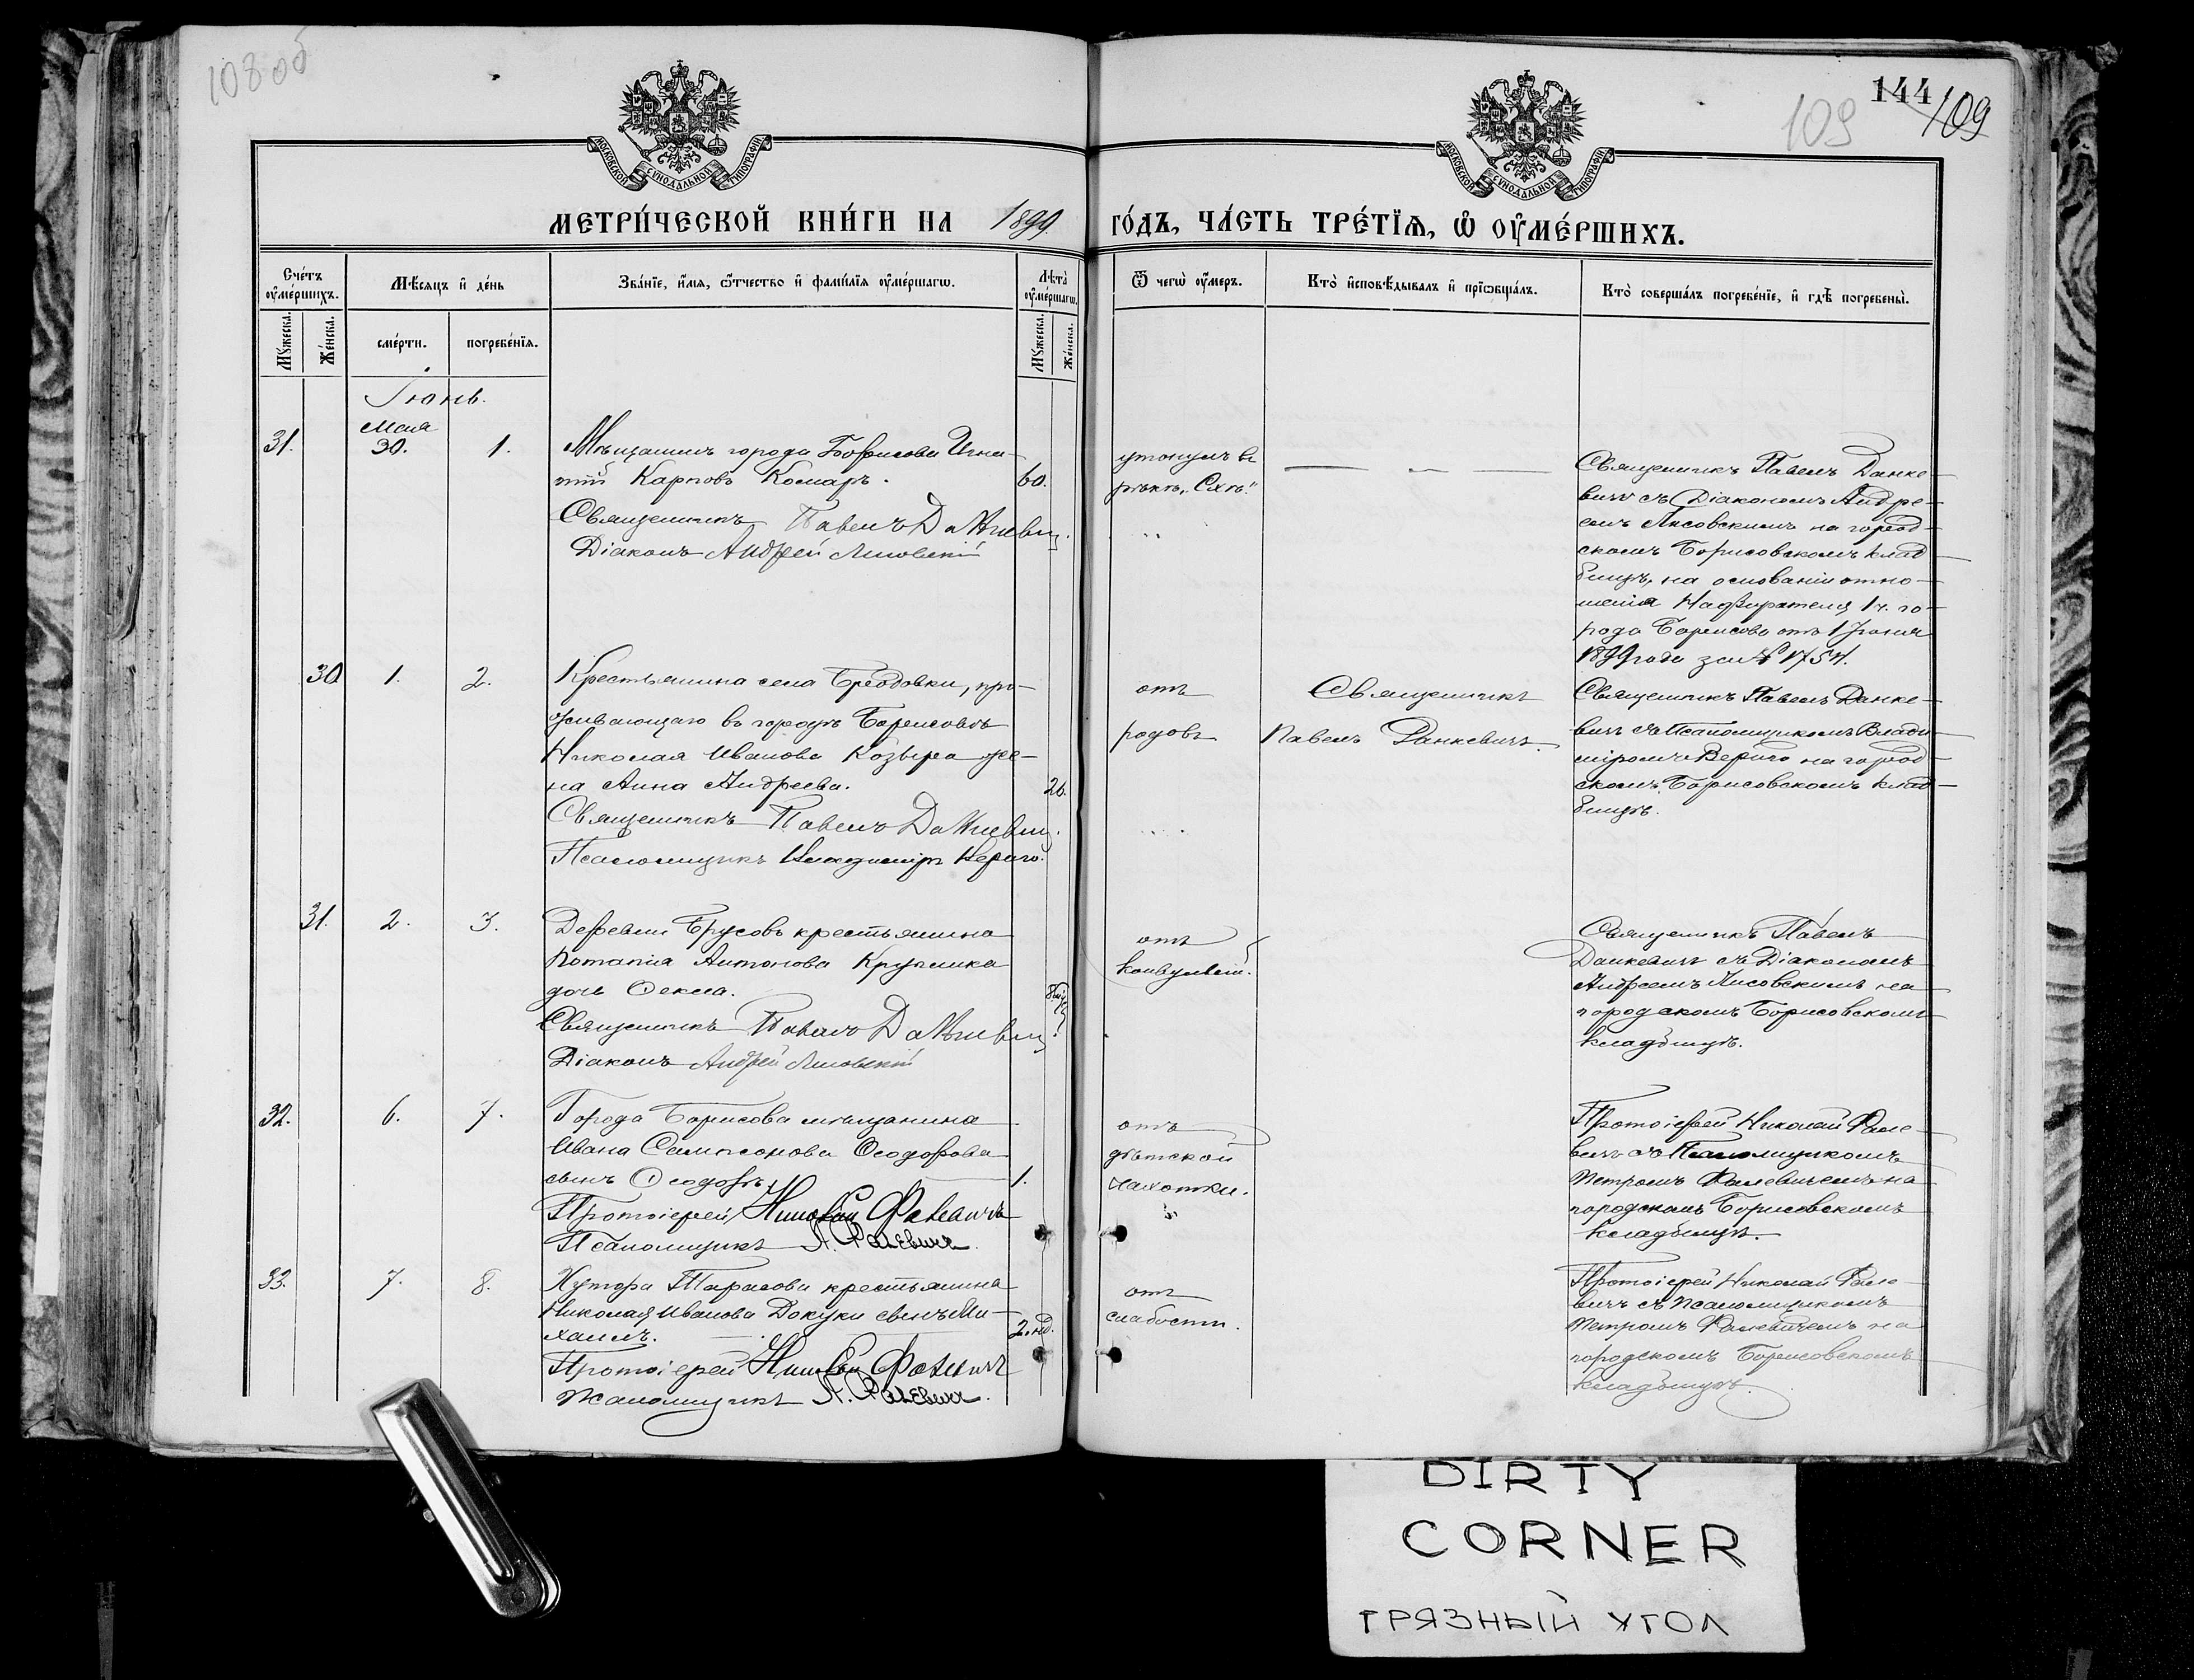 108 об
144
109
109
МОСКОВСКОЙ СѴНОДАЛЬНОЙ ТИПОГРАФІИ
МОСКОВСКОЙ СѴНОДАЛЬНОЙ ТИПОГРАФІИ
МЕТРИ́ЧЕСКОЙ КНИ́ГИ НА 1899 ГО́ДЪ, ЧА́СТЬ ТРЕ́ТІѦ, Ѡ҆ ОУ҆МЕ́РШИХЪ.
Сче́тъ оу҆ме́ршихъ.
Мѣ́сяцъ и҆ де́нь
Зва́нїе, и҆́мя, ѻ҆́тчество и҆ фами́лїя оу҆ме́ршагѡ.
Лѣ́та оу҆ме́ршагѡ.
Ѿ чегѡ̀ оу҆́меръ.
Кто̀ и҆сповѣ́дывалъ и҆ прїѡбща́лъ.
Кто̀ соверша́лъ погребе́нїе, и҆ гдѣ̀ погребены̀.
Му́жеска.
Же́нска.
сме́рти.
погребе́нїя.
Му́жеска.
Же́нска.
Іюнь.
31.
Мая
30.
1.
Мѣщанинъ города Борисова Игна-
тій Карповъ Комаръ.
60.
Священникъ Павелъ Данкевич
Діаконъ Андрей Лисовскій
утонулъ въ
рѣкѣ „Схѣ“
Священникъ Павелъ Данке-
вичъ съ Діакономъ Андре-
емъ Лисовскимъ на город-
скомъ Борисовскомъ клад-
бищѣ, на основаніи отно-
шенія Надзирателя 1 ч. го-
рода Борисова отъ 1 Іюня
1899 года за № 1754.
30
1.
2.
Крестьянина села Бродовки, про-
живающаго въ городѣ Борисовѣ
Николая Иванова Козыра же-
на Анна Андреева.
26.
Священникъ Павелъ Данкевич
Псаломщикъ Владиміръ Вериго.
отъ
родовъ
Священникъ
Павелъ Данкевичъ.
Священникъ Павелъ Данке-
вичъ съ Псаломщикомъ Влади-
міромъ Вериго на город-
скомъ Борисовскомъ клад-
бищѣ.
31.
2.
3.
Деревни Брусовъ крестьянина
Антонова Крупника
дочь Ѳекла.
Священникъ Павелъ Данкевич
Діаконъ Андрей Лисовскій
отъ
конвульсій.
Священникъ Павелъ
Данкевичъ съ Діакономъ
Андреемъ Лисовскимъ на
городскомъ Борисовскомъ
кладбищѣ.
32.
6.
7.
Города Борисова мѣщанина
Ивана Сампсонова Ѳеодорова
сынъ Ѳеодоръ.
1.
Протоіерей Николай Фалевичъ
Псаломщикъ П. Фалевичъ.
отъ
дѣтской
чахотки.
Протоіерей Николай Фале-
вичъ съ Псаломщикомъ
Петромъ Фалевичемъ на
городскомъ Борисовскомъ
кладбищѣ.
33.
7.
8.
Хутора Тарасова крестьянина
Николая Иванова Докуки сынъ Ми-
хаилъ.
2. нд.
Протоіерей Николай Фалевичъ
Псаломщикъ П. Фалевичъ.
отъ
слабости.
Протоіерей Николай Фале-
вичъ съ Псаломщикомъ
Петромъ Фалевичемъ на
городскомъ Борисовскомъ
кладбищѣ.
DIRTY
CORNER
ГРЯЗНЫЙ УГОЛ